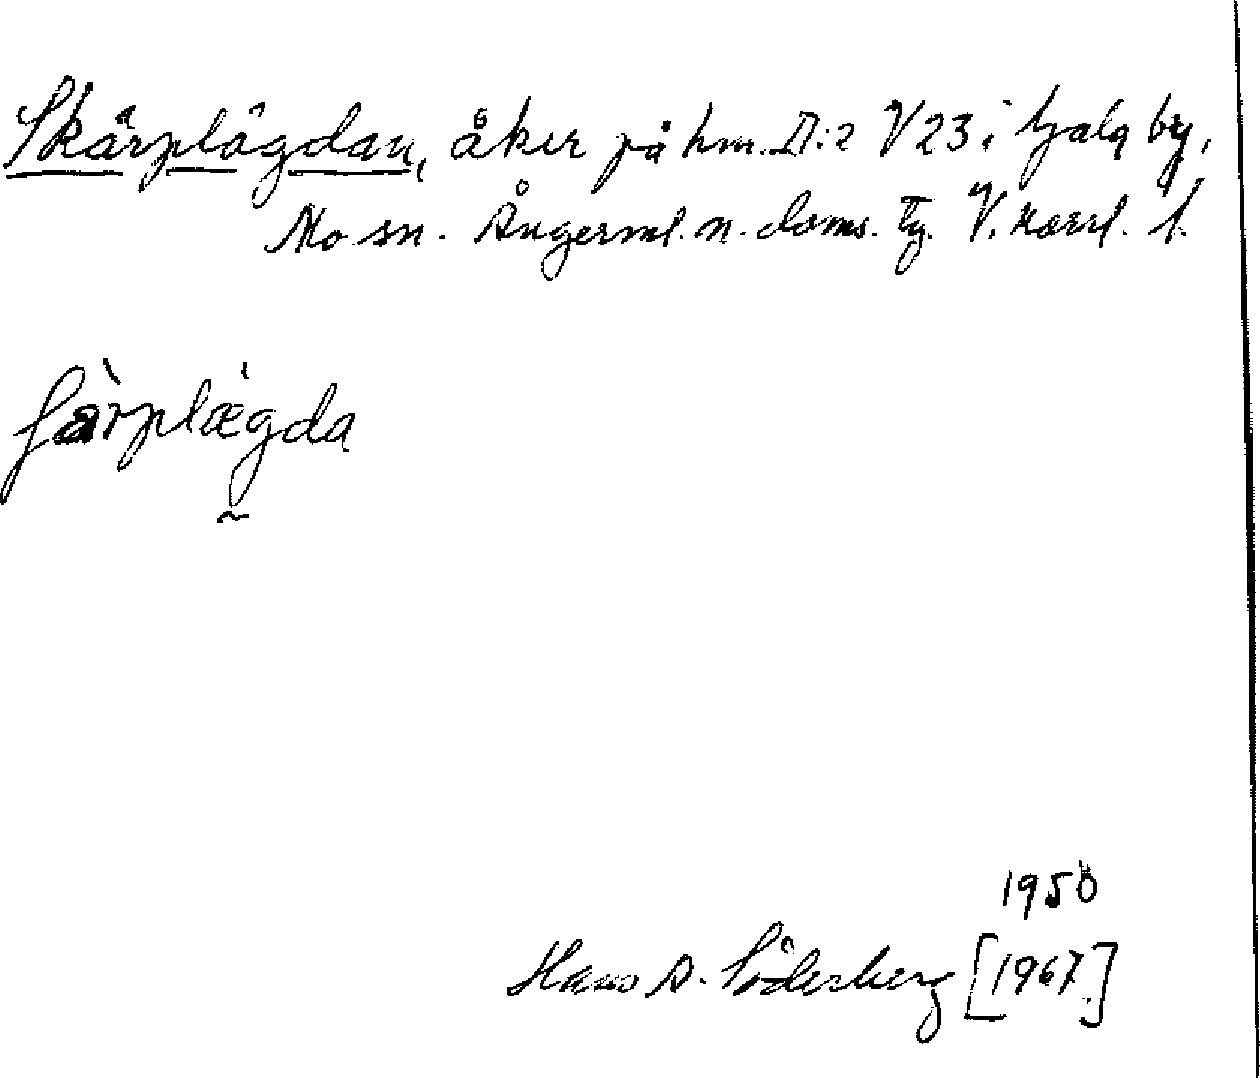 Skärplägdan, åker på hm. II:2 V23 i Gala by,
Mo sn. Ångerml. n. doms. Tg. V. norrl. l.
ʃàrplæ̀gda
1950
Hans A. Söderberg [1967]